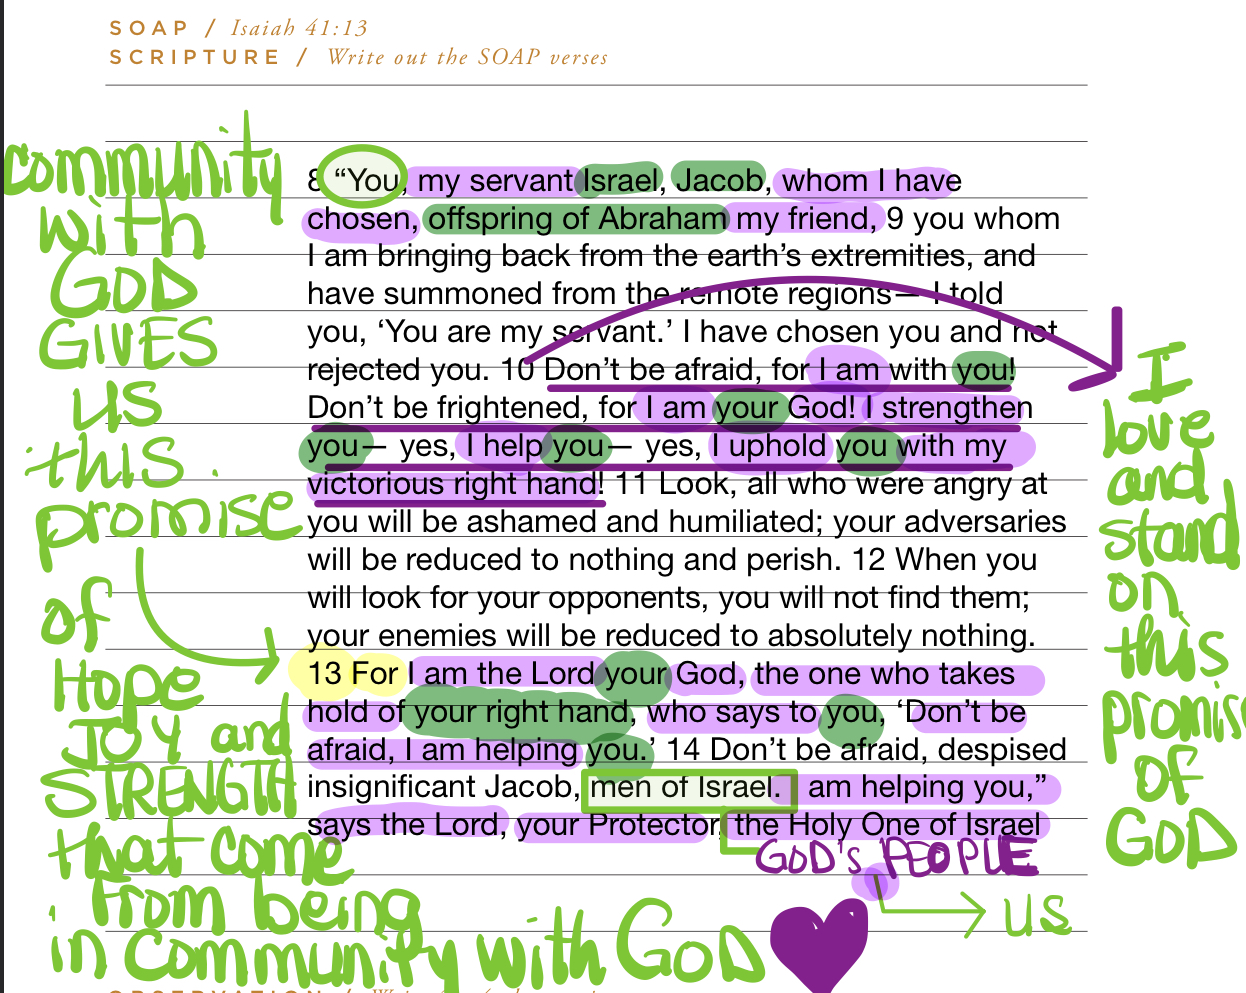 SOAP / Isaiah 41:13
SCRIPTURE / Write out the SOAP verses
8 “You, my servant Israel, Jacob, whom I have
chosen, offspring of Abraham my friend, 9 you whom
I am bringing back from the earth’s extremities, and
have summoned from the remote regions— I told
you, ‘You are my servant.’ I have chosen you and not
rejected you. 10 Don’t be afraid, for I am with you!
Don’t be frightened, for I am your God! I strengthen
you— yes, I help you— yes, I uphold you with my
victorious right hand! 11 Look, all who were angry at
you will be ashamed and humiliated; your adversaries
will be reduced to nothing and perish. 12 When you
will look for your opponents, you will not find them;
your enemies will be reduced to absolutely nothing.
13 For I am the Lord your God, the one who takes
hold of your right hand, who says to you, ‘Don’t be
afraid, I am helping you.’ 14 Don’t be afraid, despised
insignificant Jacob, men of Israel. am helping you,”
says the Lord, your Protector, the Holy One of Israel
community
with
GOD
GIVES
us
this
promise
of
Hope
JOY and
STRENGTH
that come
from being
in community with GOD
I
love
and
stand
on
this
promise
of
GOD
GOD's PEOPLE
us